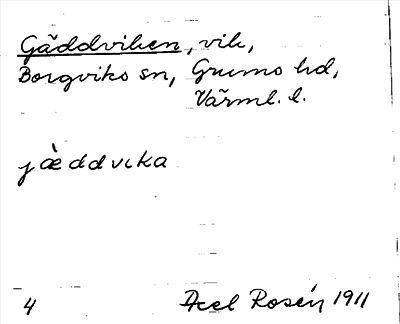 Gäddviken, vik,
Borgviks sn, Grums hd,
Värml. l.
jæ̀ddvɩka
4 Axel Rosén 1911